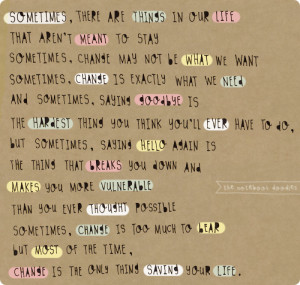 SOMETIMES, THERE ARE THINGS IN OUR LIFE
THAT AREN'T MEANT TO STAY
SOMETIMES, CHANGE MAY NOT BE WHAT WE WANT
SOMETIMES, CHANGE IS EXACTLY WHAT WE NEED
AND SOMETIMES, SAYING GOODBYE IS
THE HARDEST THING YOU THINK YOU'LL EVER HAVE TO DO,
BUT SOMETIMES, SAYING HELLO AGAIN IS
THE THING THAT BREAKS YOU DOWN AND
MAKES YOU MORE VULNERABLE
THAN YOU EVER THOUGHT POSSIBLE
SOMETIMES, CHANGE IS TOO MUCH TO BEAR
BUT MOST OF THE TIME,
CHANGE IS THE ONLY THING SAVING YOUR LIFE.
the